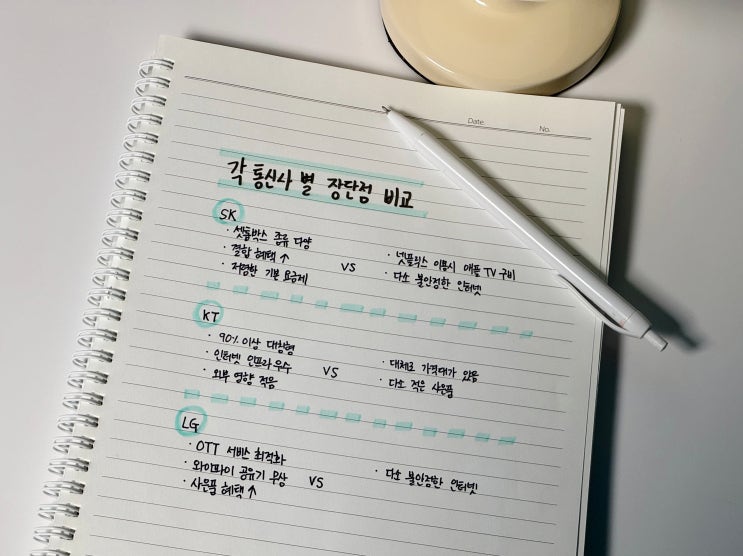 Date.
No.
각 통신사 별 장단점 비교
SK
· 셋톱박스 종류 다양
· 결합 혜택 ↑
· 저렴한 기본 요금제
VS
· 넷플릭스 이용시 애플 TV 구비
· 다소 불안정한 인터넷
KT
· 90% 이상 대칭형
· 인터넷 인프라 우수
· 외부 영향 적음
VS
· 대체로 가격대가 있음
· 다소 적은 사은품
LG
· OTT 서비스 최적화
· 와이파이 공유기 우상
· 사은품 혜택 ↑
VS
· 다소 불안정한 인터넷